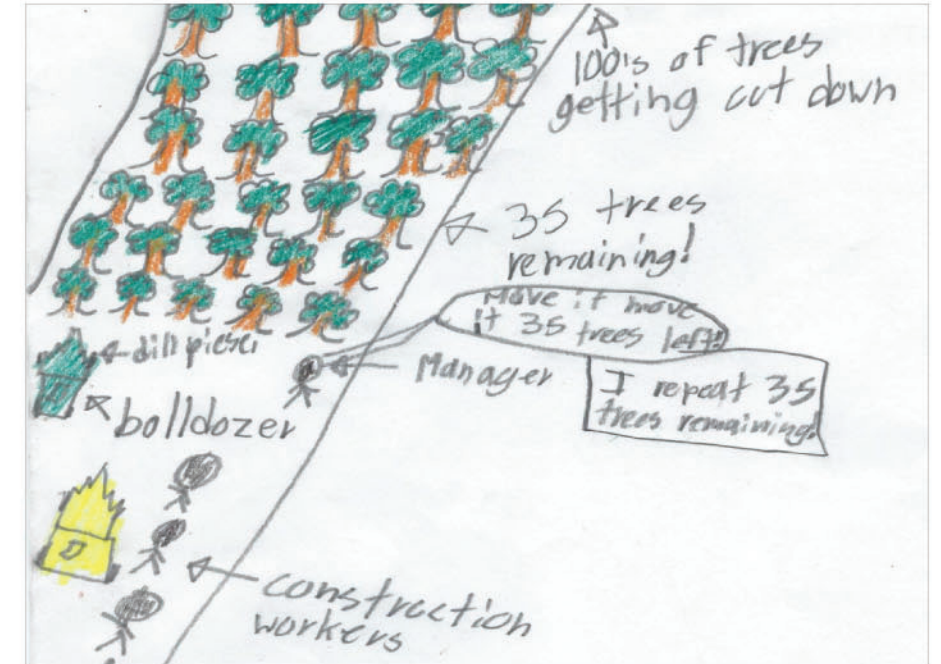 100's of trees
getting cut down
35 trees
remaining!
Move it move
it 35 trees left!
I repeat 35
trees remaining!
Manager
bolldozer
construction
workers